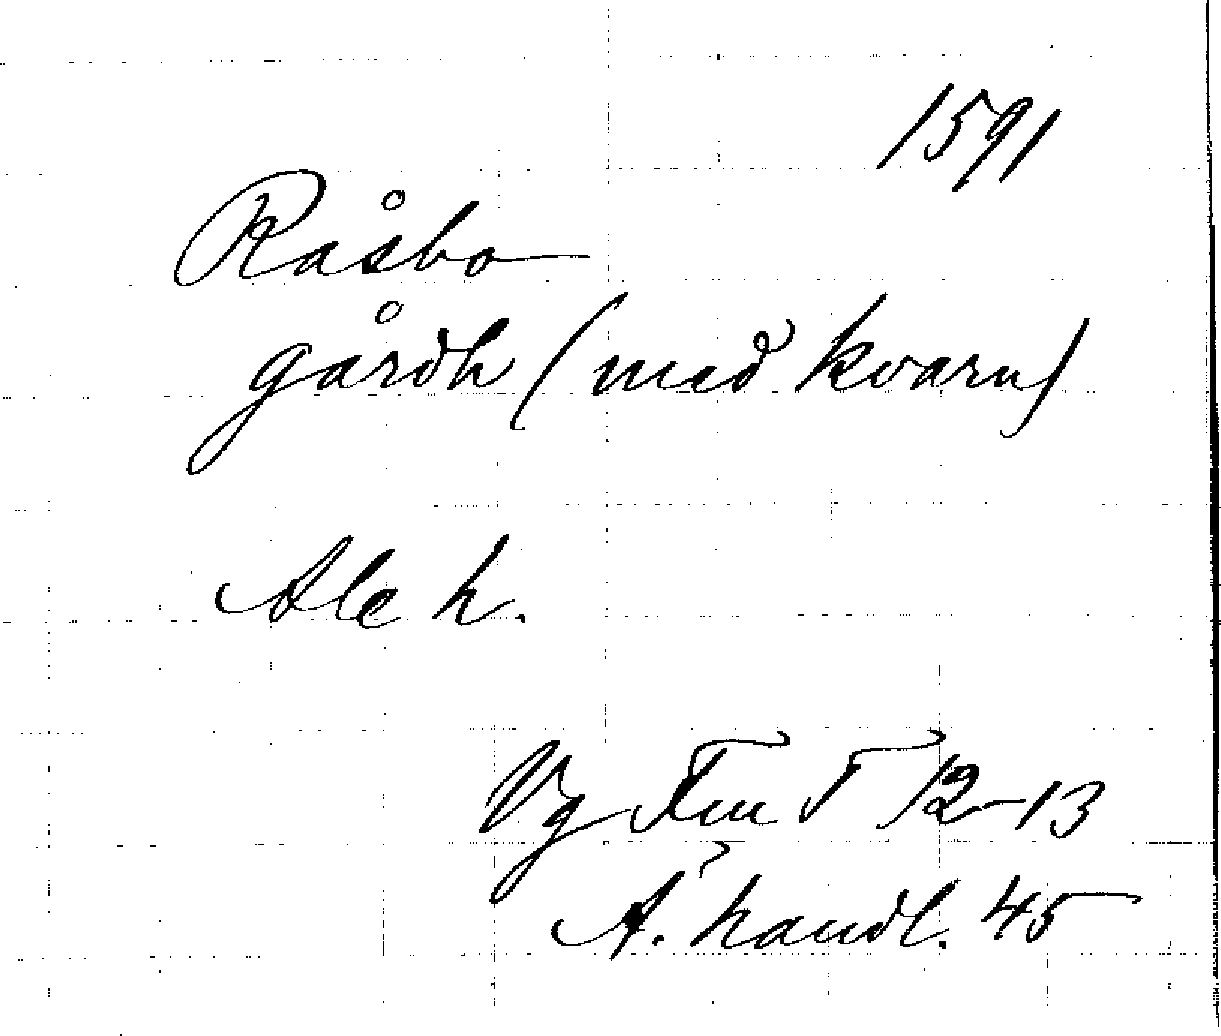 1591
Råsbo
gårdh (med kvarn)
Ale h.
Vg Fm T 12-13
Å. handl. 45